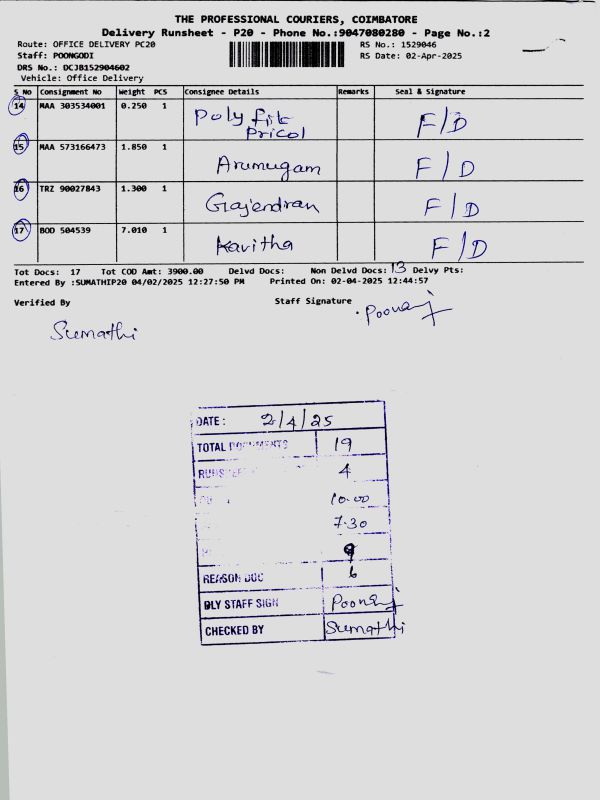 THE PROFESSIONAL COURIERS, COIMBATORE
Delivery Runsheet - P20 - Phone No.:9047080280 - Page No.:2
Route: OFFICE DELIVERY PC20 RS No.: 1529046
Staff: POONGODI RS Date: 02-Apr-2025
DRS No.: DCJB152904602
Vehicle: Office Delivery
S No Consignment No Weight PCS Consignee Details Remarks Seal & Signature
14 MAA 303534001 0.250 1 Poly fit F/D
Pricol
15 MAA 573166473 1.850 1 Arumugam F/D
16 TRZ 90027843 1.300 1 Gajendran F/D
17 BOD 504539 7.010 1 Kavitha F/D
Tot Docs: 17 Tot COD Amt: 3900.00 Delvd Docs: Non Delvd Docs: 13 Delvy Pts:
Entered By :SUMATHIP20 04/02/2025 12:27:50 PM Printed On: 02-04-2025 12:44:57
Verified By Staff Signature
Sumathi
DATE : 2/4/25
TOTAL DOCUMENTS 19
4
10.00
7.30
9
REASON DOC 6
DLY STAFF SIGN
CHECKED BY Sumathi